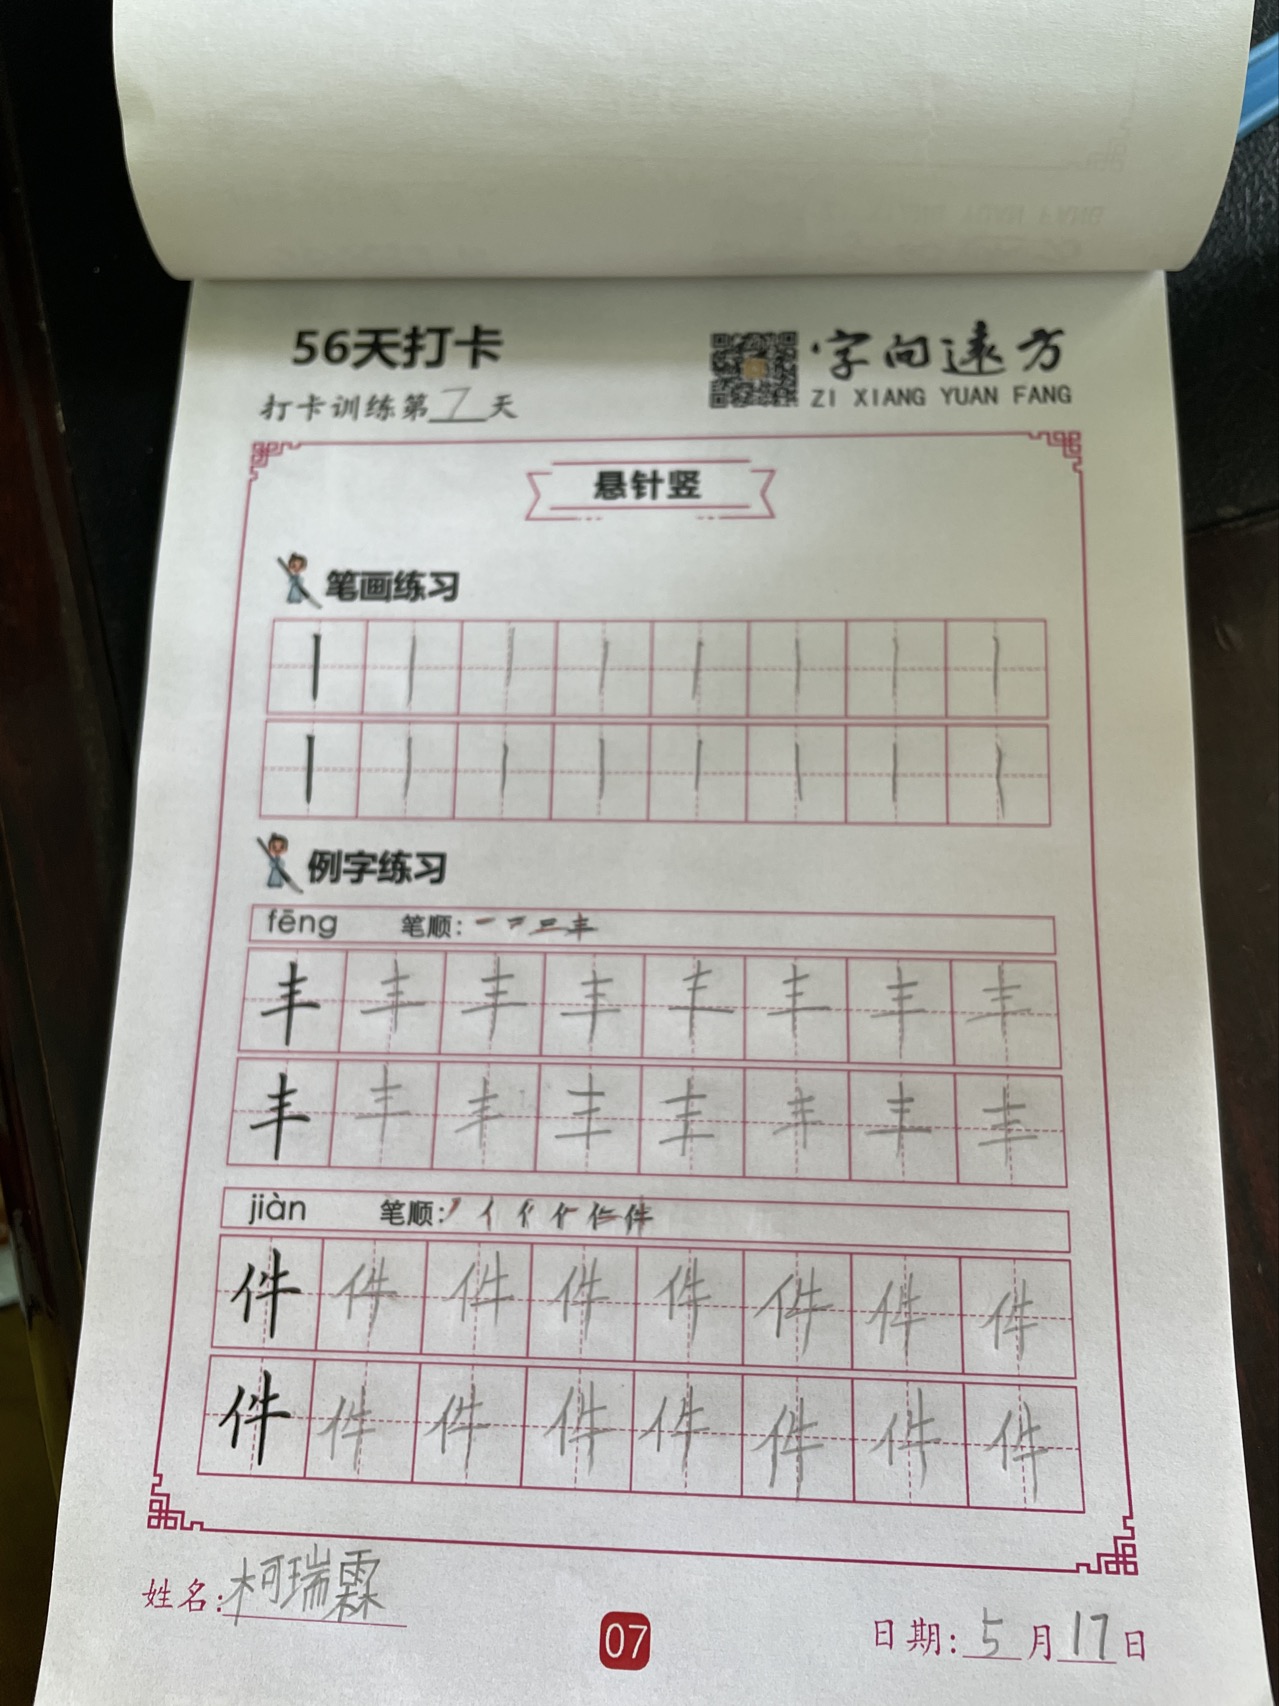 56天打卡
字向遠方
打卡训练第7天
ZI XIANG YUAN FANG
悬针竖
笔画练习
丨丨丨丨丨丨丨丨
丨丨丨丨丨丨丨丨
例字练习
fēng 笔顺:一二三丰
丰丰丰丰丰丰丰丰
丰丰丰丰丰丰丰丰
jiàn 笔顺:
件件件件件件件件
件件件件件件件件
姓名:柯瑞霖
07
日期:5月17日